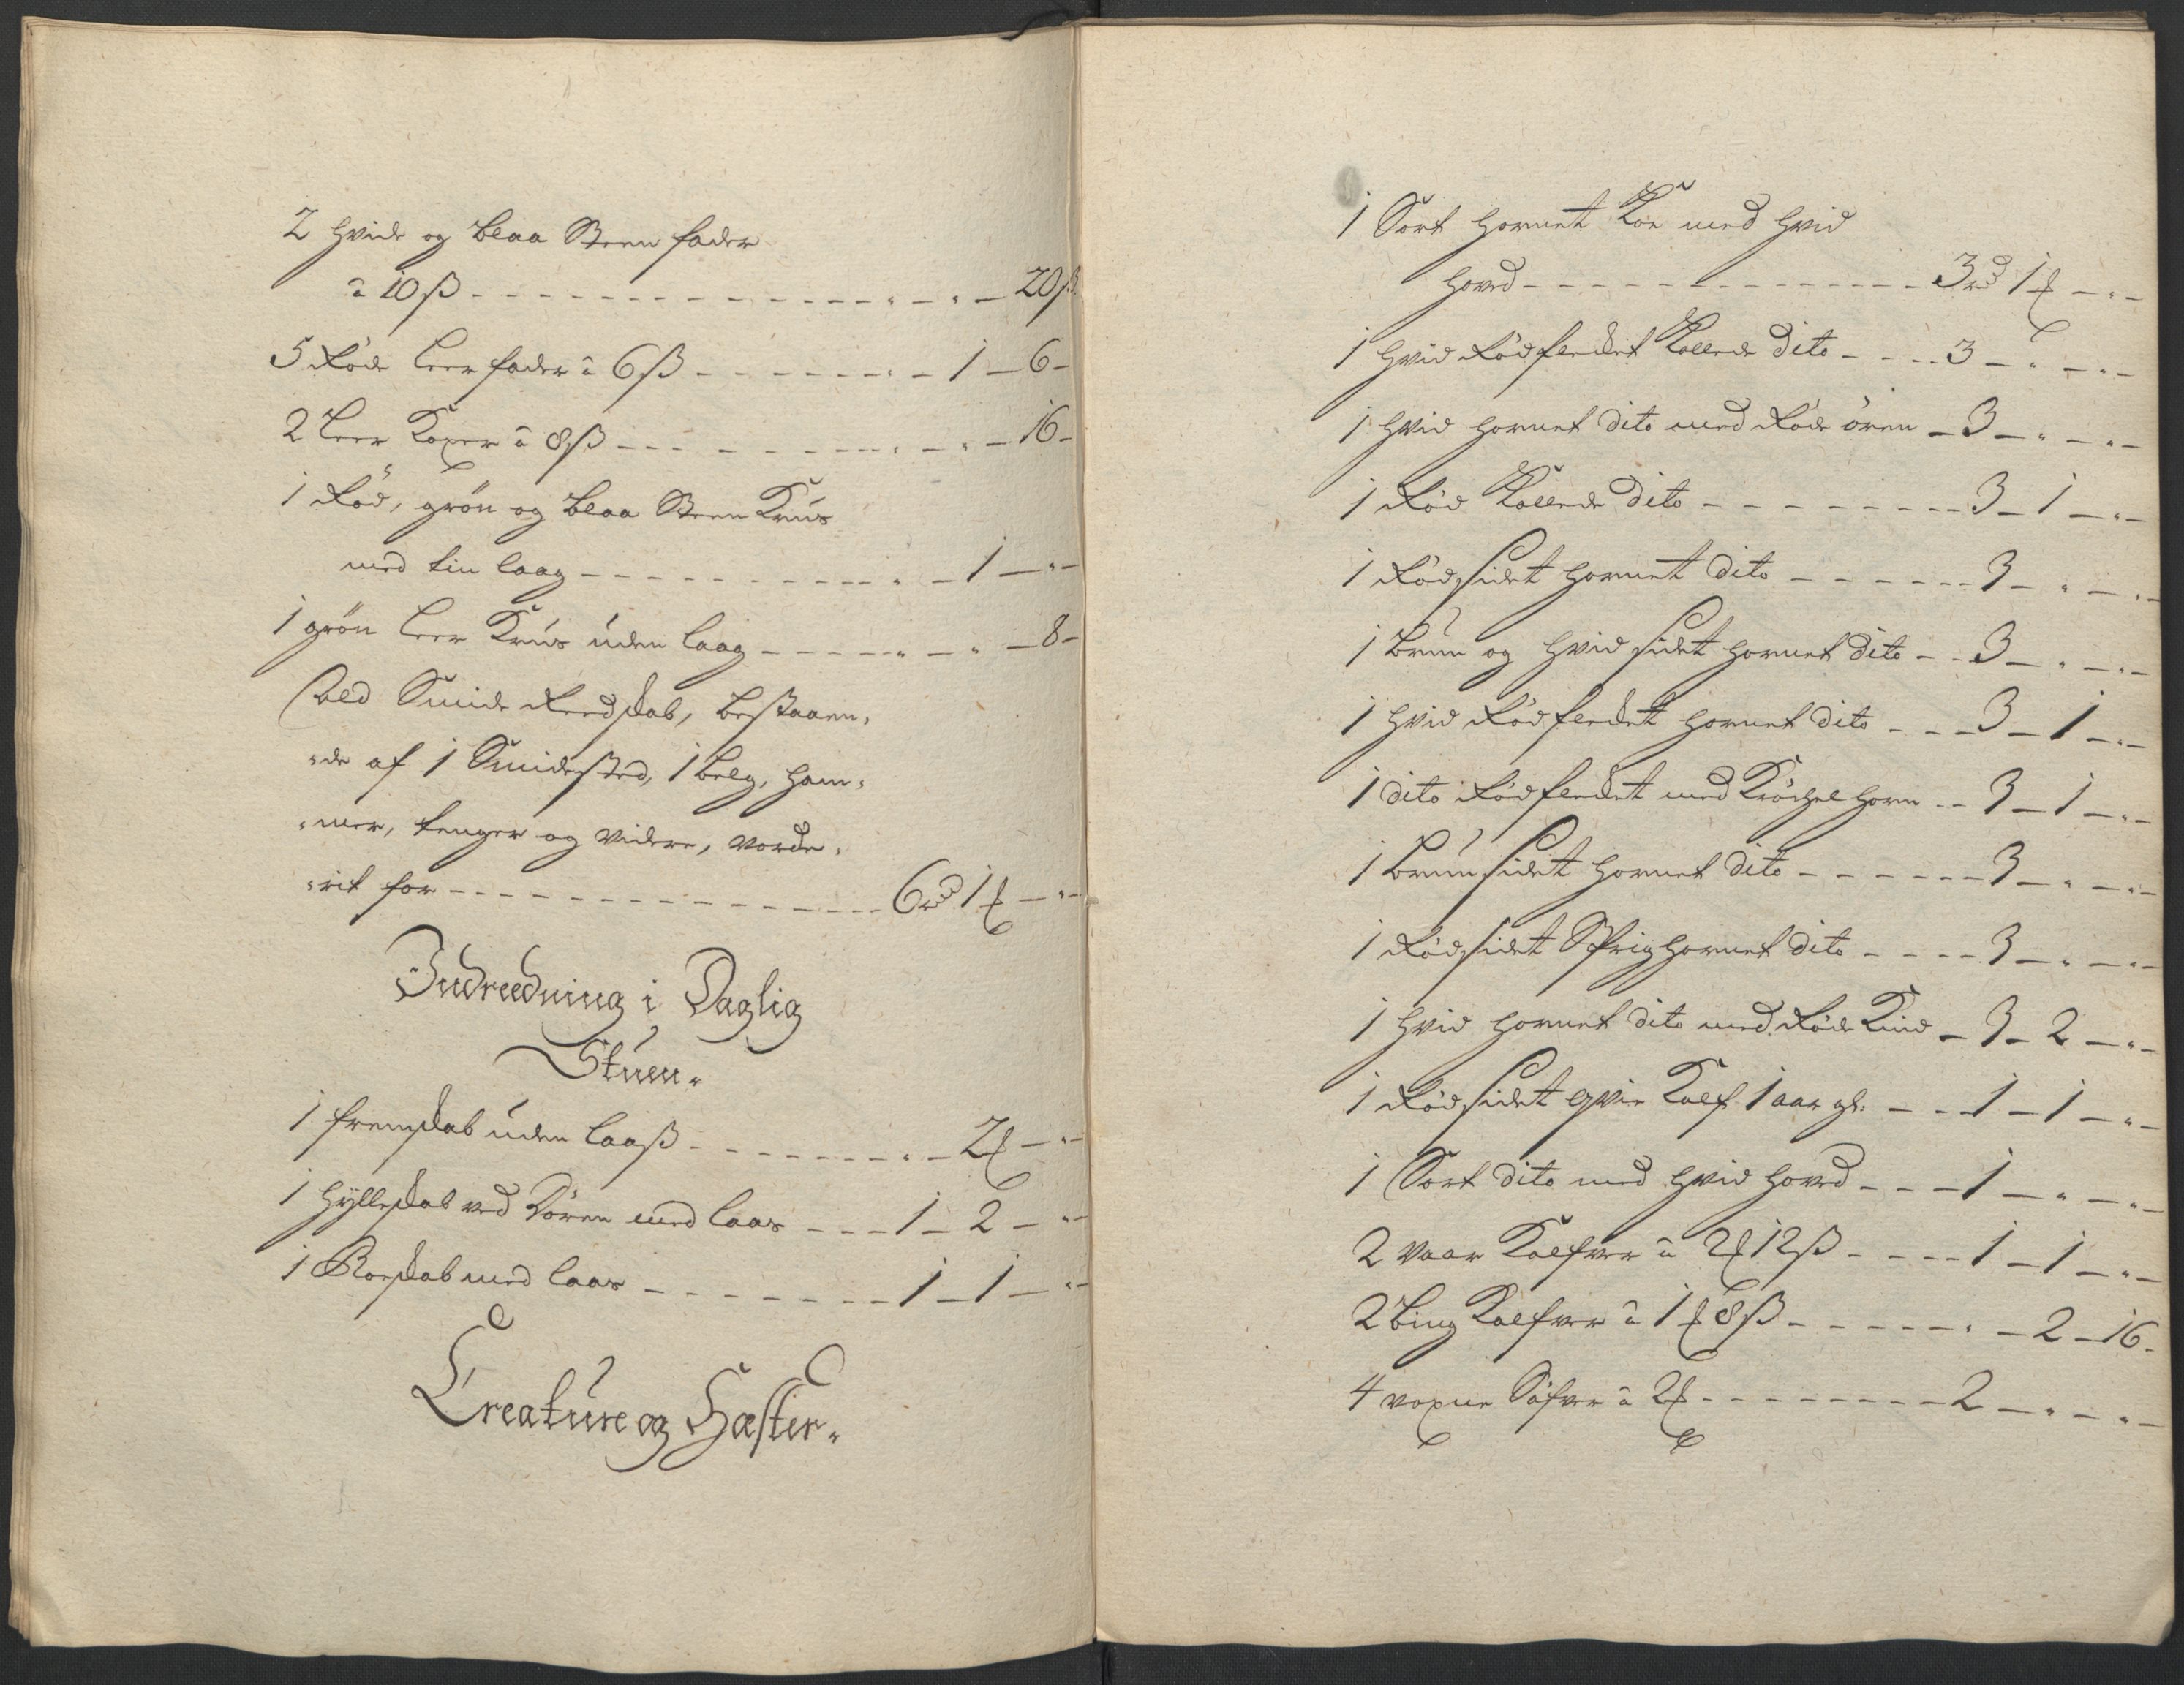 2 hvide og blaa Steen fader
a 10 ß - - - - - - - - - - - - - - „ - „ - 20 ß
5 Røde leer fader â 6 ß - - - - - - - „ - 1 - 6 -
2 leer Koper â 8 ß - - - - - - - - „ - „ - 16 -
1 Rød, grön og blaa Steen Kruus
med tin laag - - - - - - - - - „ - 1 - „ -
1 grön leer Kruus uden laag - - - - - „ - „ - 8 -
Ald Smide Reedskab, bestaaen„
„de af 1 Smidestéd, 1 belg, ham„
„mer, tenger og videre, vorde„
„rit for - - - - - - - - - - - - - - 6 rd 1 ℔ - „ -
Indreedning i Daglig
Stuen„
1 fremskab uden laaß - - - - - - - - „ - 2 ℔ - „ -
1 hylleskab ved Dören med laas - - - 1 - 2 - „ -
1 Roeskab med laas - - - - - - - - 1 - 1 - „ -
Creature og Hæster„
1 Sort hornet Koe med hvid
hoved - - - - - - - - - - - - - - 3 rd 1 ℔ - „ -
1 hvid Rødflecket Kollede dito - - - - 3 - „ - „ -
1 hvid hornet dito med Røde ören - 3 - „ - „ -
1 Rød Kollede dito - - - - - - - - - 3 - 1 - „ -
1 Rødsidet hornet dito - - - - - - 3 - „ - „ -
1 Bruun og hvid sidet hornet dito - - 3 - „ - „ -
1 hvid Rødflecket hornet dito - - - 3 - 1 - „ -
1 dito Rødflecket med Kröchel horn - - 3 - 1 - „ -
1 Bruunsidet hornet dito - - - - - - 3 - „ - „ -
1 Rødsidet Sprighornet dito - - - - 3 - „ - „ -
1 hvid hornet dito med Røde Kind - 3 - 2 - „ -
1 Rødsidet qvie Kalf 1 aar gl: - - - 1 - 1 - „ -
1 Sort dito med hvid hoved - - - 1 - „ - „ -
2 vaar Kalfver â 2 ℔ 12 ß - - - - 1 - 1 - „ -
2 bing Kalfver â 1 ℔ 8 ß - - - - - „ - 2 - 16 -
4 voxne Söfver â 2 ℔ - - - - - - - - 2 - „ - „ -